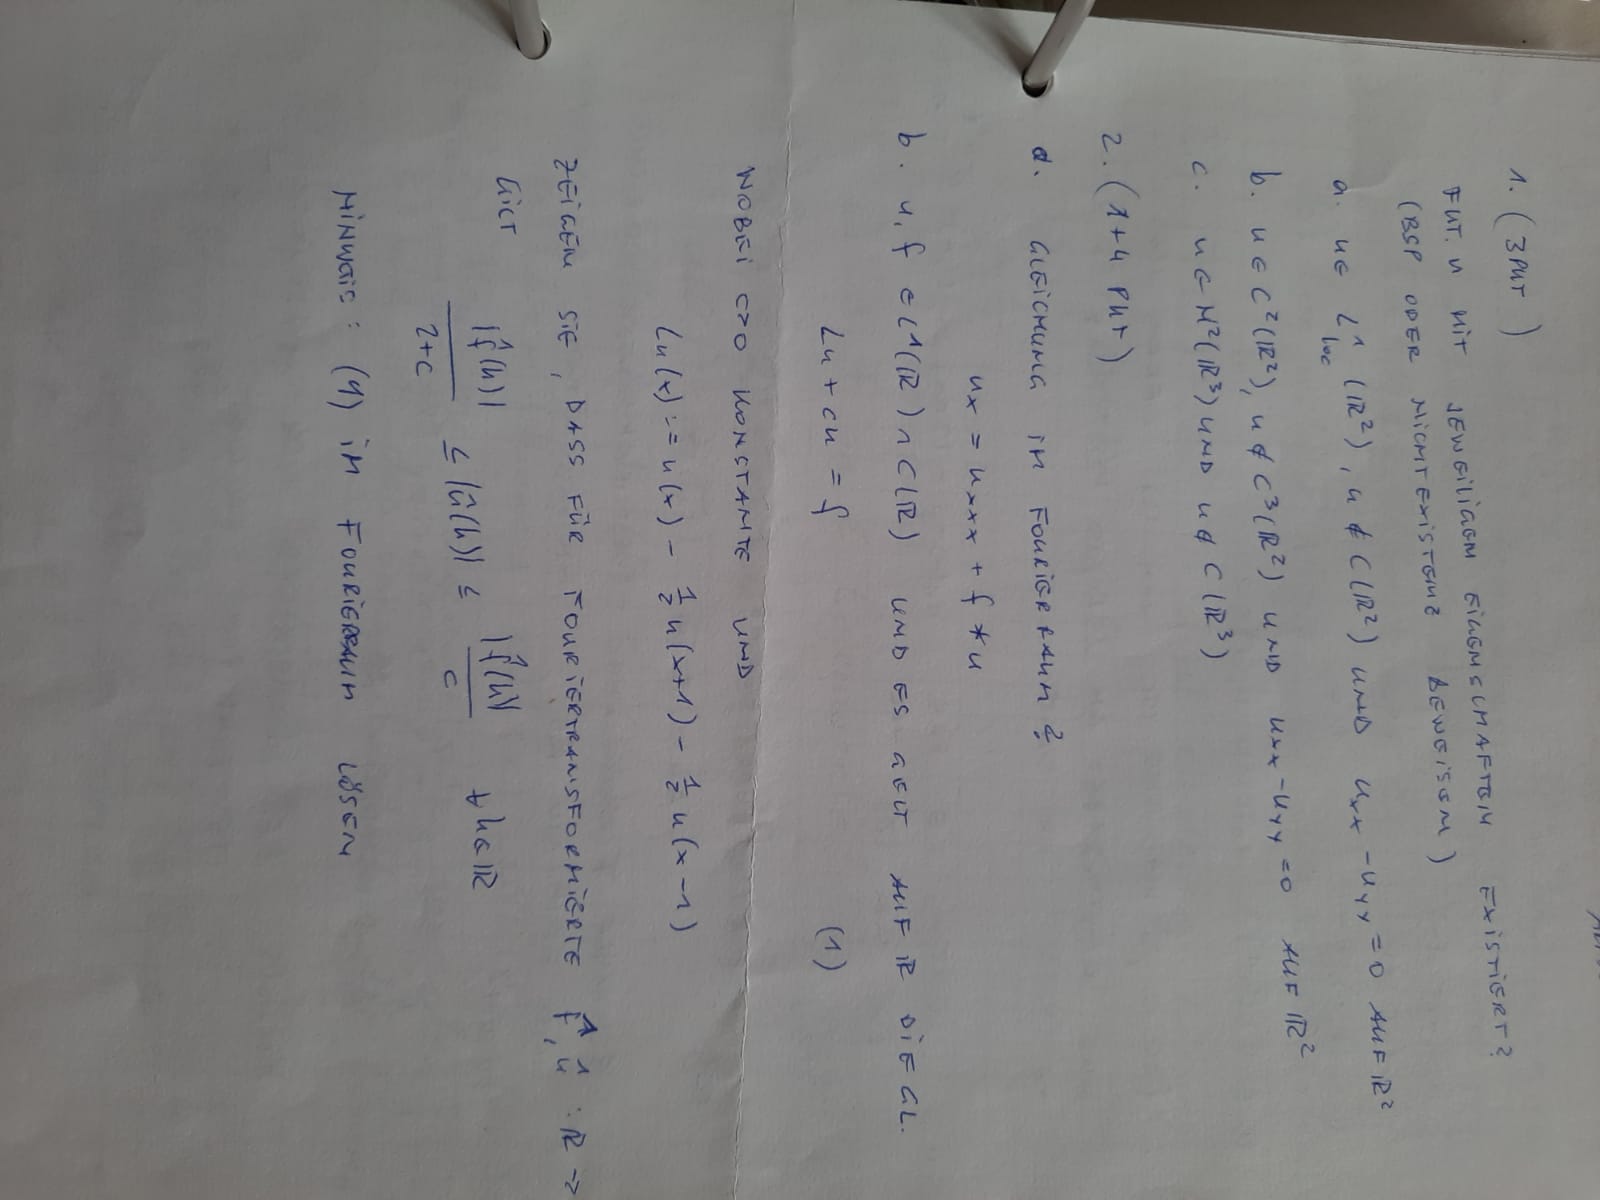 1. (3 PUT )
FUT. U MIT JEWEILIGEM EIGENSCHAFTEN EXISTIERT?
(BSP ODER NICHTEXISTENZ BEWEISEN)
a. u ∈ L¹loc (ℝ²), u ∉ C(ℝ²) UND uxx - uyy = 0 AUF ℝ²
b. u ∈ C²(ℝ²), u ∉ C³(ℝ²) UND uxx - uyy = 0 AUF ℝ²
c. u ∈ H²(ℝ³) UND u ∉ C(ℝ³)
2. (1+4 PUT)
a. GLEICHUNG IM FOURIERRAUM?
ux = uxxx + f * u
b. u, f ∈ L¹(ℝ) ∩ C(ℝ) UND ES GELT AUF ℝ DIE GL.
Lu + cu = f (1)
WOBEI C>0 KONSTANTE UND
Lu(x) := u(x) - 1/2 u(x+1) - 1/2 u(x-1)
ZEIGEN SIE, DASS FÜR FOURIERTRANSFORMIERTE f̂, û : ℝ →
GILT |f̂(k)| / (2+c) ≤ |û(k)| ≤ |f̂(k)| / c ∀ k ∈ ℝ
HINWEIS: (1) IM FOURIERRAUM LÖSEN